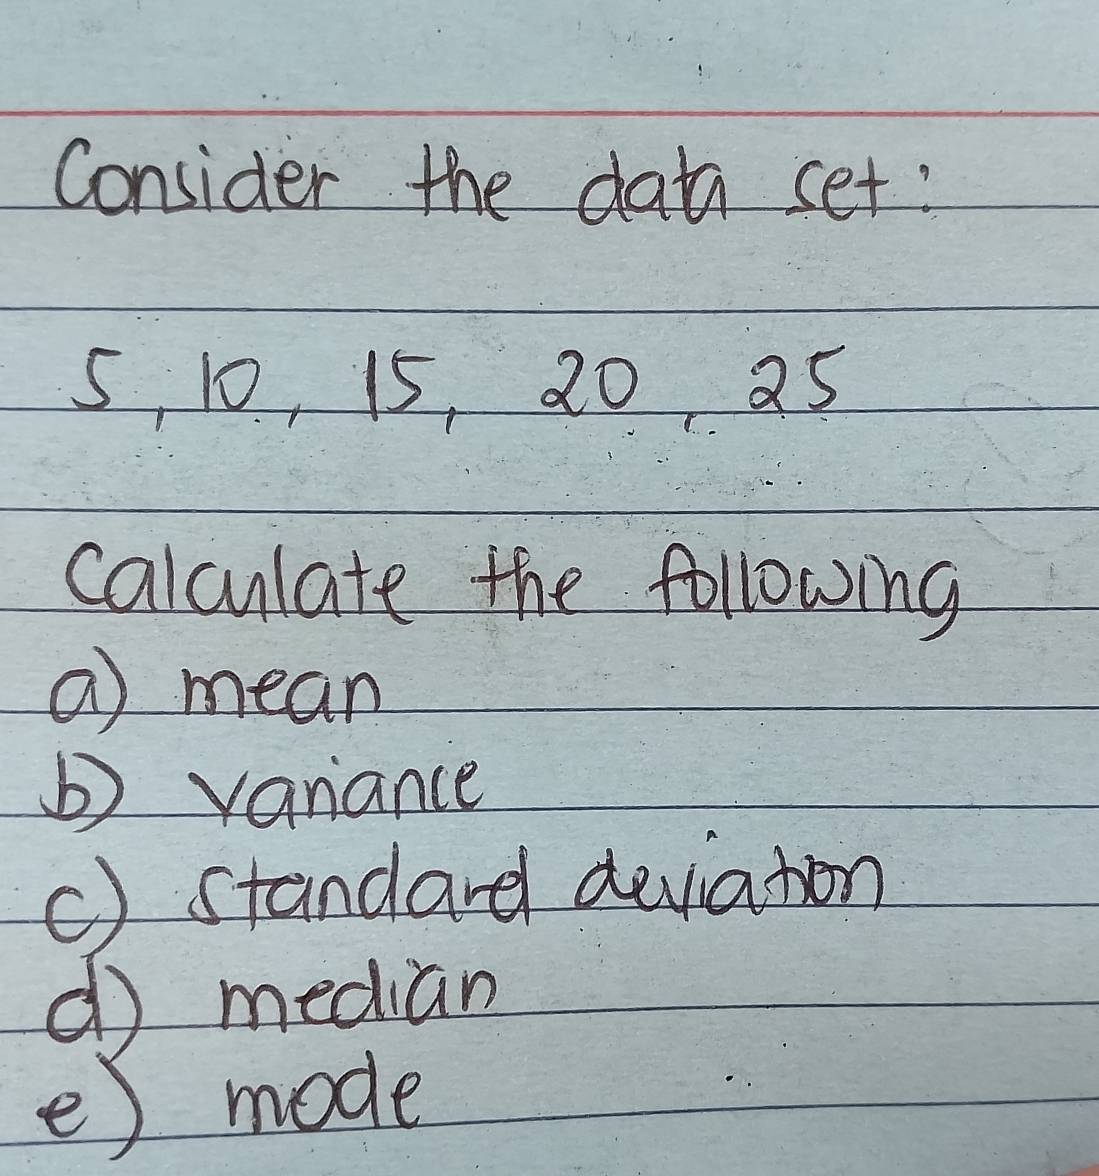 Consider the data set:
5, 10, 15, 20, 25
Calculate the following
a) mean
b) variance
c) standard deviation
d) median
e) mode